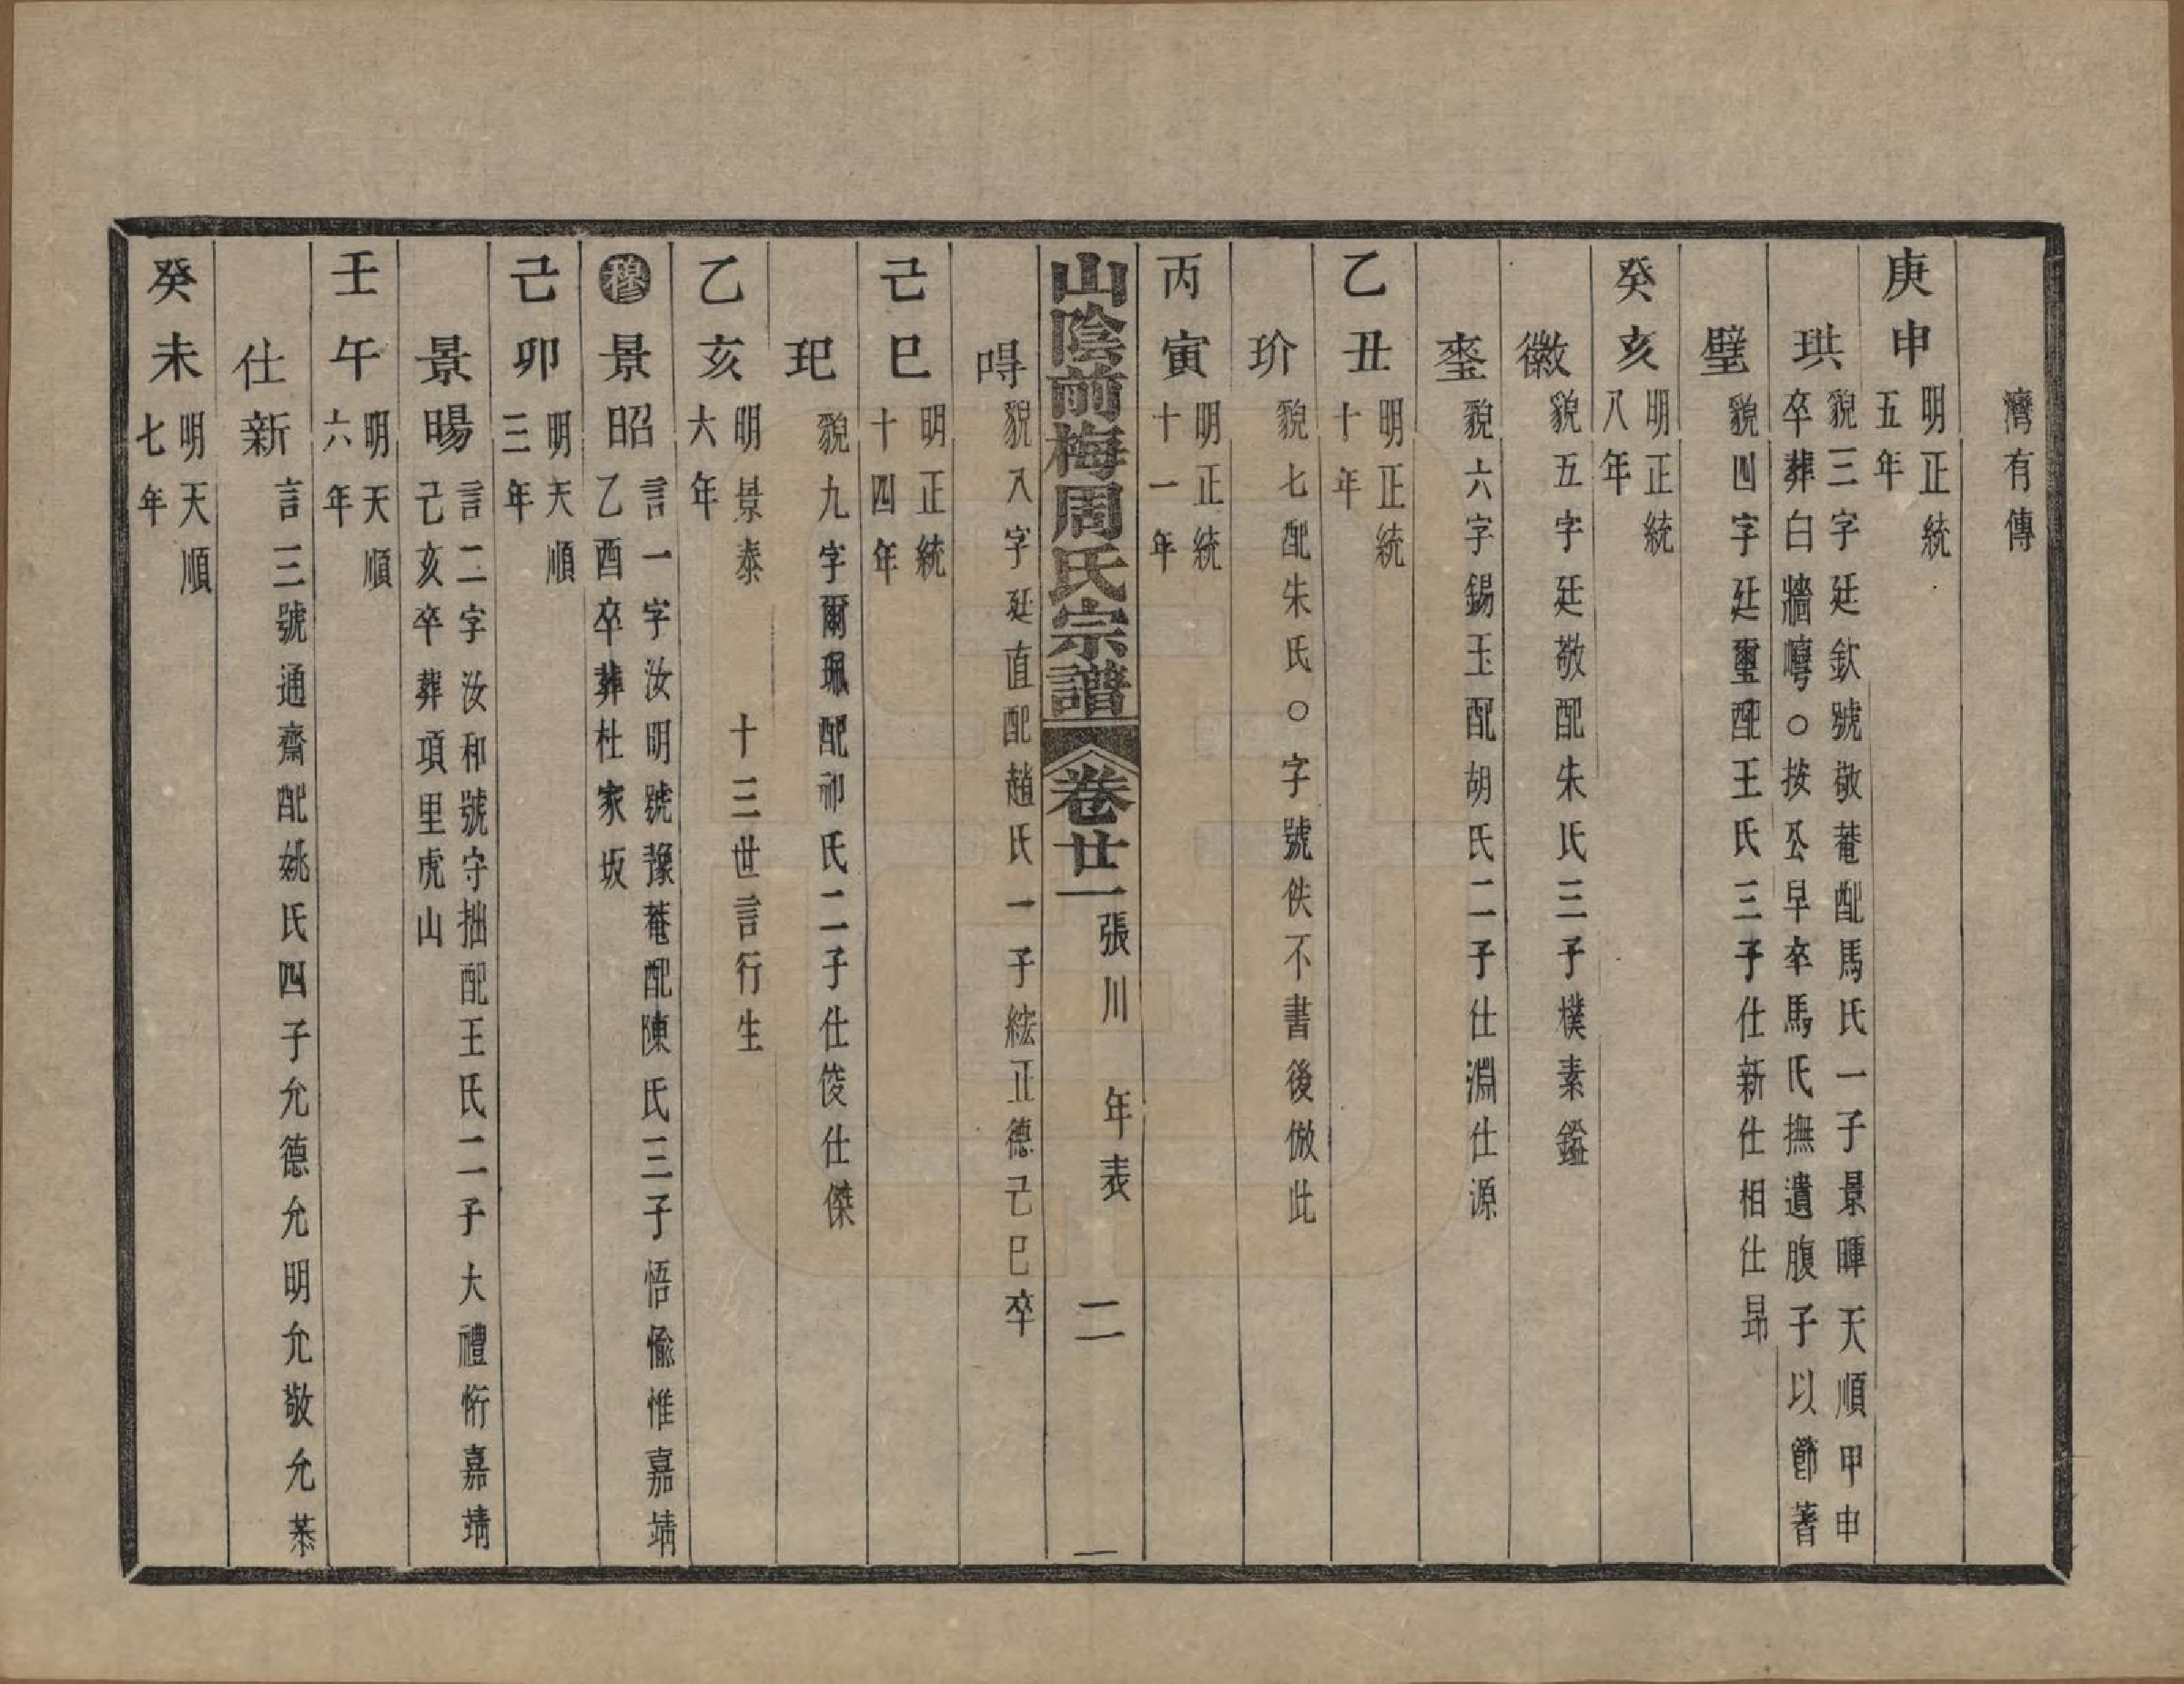 濟有傳
庚申 明正統五年
珙 貌三字廷欽號敬菴配馬氏一子景暉天順甲申
卒葬白牆嶀○按公早卒馬氏撫遺腹子以節著
璧 貌四字廷璽配王氏三子仕新仕相仕昻
癸亥 明正統八年
徽 貌五字廷敬配朱氏三子樸素鎰
瑬 貌六字錫玉配胡氏二子仕淵仕源
乙丑 明正統十年
玠 貌七配朱氏○字號佚不書後倣此
丙寅 明正統十一年
山陰前梅周氏宗譜 卷廿一 張川 年表 二
㝵 貌八字廷直配趙氏一子綋正德己巳卒
己巳 明正統十四年
玘 貌九字爾珮配祁氏二子仕俊仕傑
乙亥 明景泰六年 十三世言行生
穆 景昭 言一字汝明號豫菴配陳氏三子悟愉惟嘉靖
乙酉卒葬杜家坂
己卯 明天順三年
景暘 言二字汝和號守拙配王氏二子大禮恉嘉靖
己亥卒葬項里虎山
壬午 明天順六年
仕新 言三號通齋配姚氏四子允德允明允敬允恭
癸未 明天順七年